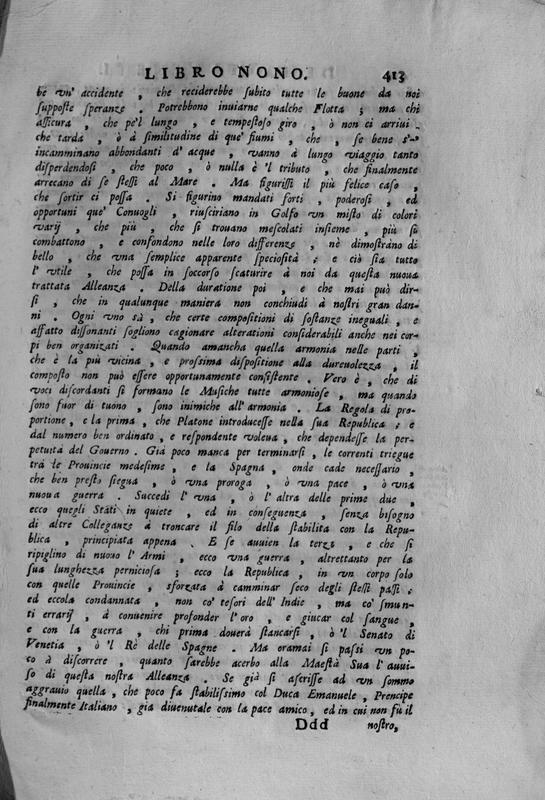 LIBRO NONO. 413
be vn' accidente , che reciderebbe subito tutte le buone da noi
supposte speranze . Potrebbono inuiarne qualche Flotta ; ma chi
assicura , che pe'l lungo , e tempestoso giro , ò non ci arriui ,
che tarda , ò à similitudine di que' fiumi , che , se bene s'in-
incamminano abbondanti d' acque , vanno à lungo viaggio tanto
disperdendosi , che poco , ò nulla è 'l tributo , che finalmente
arrecano di se stessi al Mare . Ma figurisi il più felice caso ,
che sortir ci possa . Si figurino mandati forti , poderosi , ed
opportuni que' Conuogli , riusciriano in Golfo vn misto di colori
varij , che più , che si trouano mescolati insieme , più si
combattono , e confondono nelle loro differenze , nè dimostrano di
bello , che vna semplice apparente speciosità ; e ciò sia tutto
l' vtile , che possa in soccorso scaturire à noi da questa nuoua
trattata Alleanza . Della duratione poi , e che mai può dir-
si , che in qualunque maniera non conchiudi à nostri gran dan-
ni . Ogni vno sà , che certe compositioni di sostanze ineguali , e
affatto dissonanti sogliono cagionare alterationi considerabili anche nei cor-
pi ben organizati . Quando amancha quella armonia nelle parti ,
che è la più vicina , e prossima dispositione alla dureuolezza , il
composto non può essere opportunamente consistente . Vero è , che di
voci discordanti si formano le Musiche tutte armoniose , ma quando
sono fuor di tuono , sono inimiche all' armonia . La Regola di pro-
portione , e la prima , che Platone introducesse nella sua Republica ; e
dal numero ben ordinato , e respondente voleua , che dependesse la per-
petuità del Gouerno . Già poco manca per terminarsi , le correnti triegue
trà le Prouincie medesime , e la Spagna , onde cade necessario ,
che ben presto siegua , ò vna proroga , ò vna pace , ò vna
nuoua guerra . Succedi l' vna , ò l' altra delle prime due ,
ecco quegli Stati in quiete , ed in conseguenza , senza bisogno
di altre Colleganze à troncare il filo della stabilita con la Repu-
blica , principiata appena . E se auuien la terza , e che si
ripiglino di nuouo l' Armi , ecco vna guerra , altrettanto per la
sua lunghezza perniciosa ; ecco la Republica , in vn corpo solo
con quelle Prouincie , sforzata à camminar seco degli stessi passi ;
ed eccola condannata , non co' tesori dell' Indie , ma co' smun-
ti errarij , à conuenire profonder l' oro , e giucar col sangue ,
e con la guerra , chi prima douerà stancarsi , ò 'l Senato di
Venetia , ò 'l Rè delle Spagne . Ma oramai si passi vn po-
co à discorrere , quanto sarebbe acerbo alla Maestà Sua l' auui-
so di questa nostra Alleanza . Se già si ascrisse ad vn sommo
aggrauio quella , che poco fa stabilissimo col Duca Emanuele , Prencipe
finalmente Italiano , gia diuenutale con la pace amico , ed in cui non fù il
Ddd nostro,